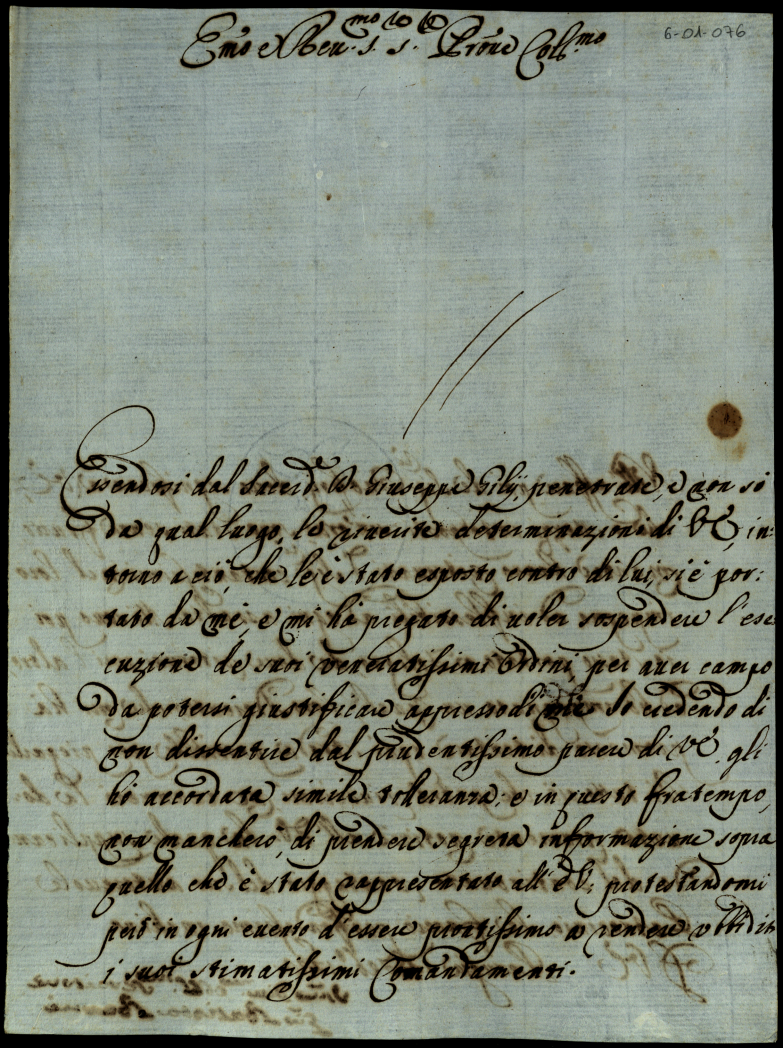 6-01-076
Emo e Reu.mo S.re S.re Prõne Col.mo
Essendosi dal Sacerd. D. Giuseppe Gilij penetrate, e non sò
da qual luogo, le riuerite determinazioni di V.E. in-
torno a ciò, che le è stato esposto contro di lui, si è por-
tato da mé, e mi hà pregato di uoler sospendere l'ese-
cuzione de suoi veneratissimi Ordini, per auer campo
da potersi giustificare appresso di Io credendo di
non dissentire dal prudentissimo parere di V.E. gli
hò accordata simile tolleranza; e in questo fratempo,
non mancherò, di prendere segreta informazione sopra
quello che è stato rappresentato all'E.V. protestandomi
però in ogni euento d'essere prontissimo a rendere vbbiditi
i suoi stimatissimi Comandamenti.